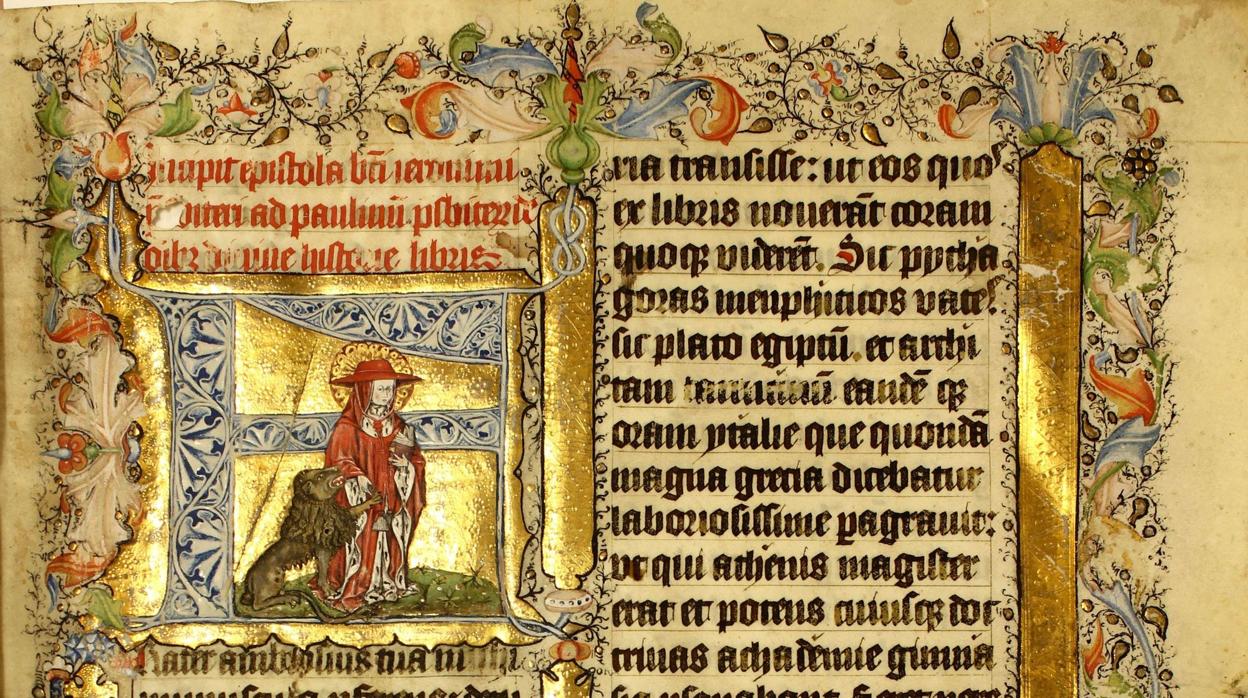 Incipit epistola bti ieronimi
ad paulinū psbiterū de
oībꝫ divine historie libris
Frater ambrosius tua michi
ria transisse: ut eos quos
ex libris noverāt coram
quoqꝫ viderēt. Sic pytha
goras memphiticos vates.
sic plato egiptū. et archi
tam tarentinū eandē qꝫ
oram ytalie que quondā
magna grecia dicebatur
laboriosissime ꝑagravit:
vt qui athenis magister
erat et potens cuiusqꝫ doc
trinas achademie gimna
sia